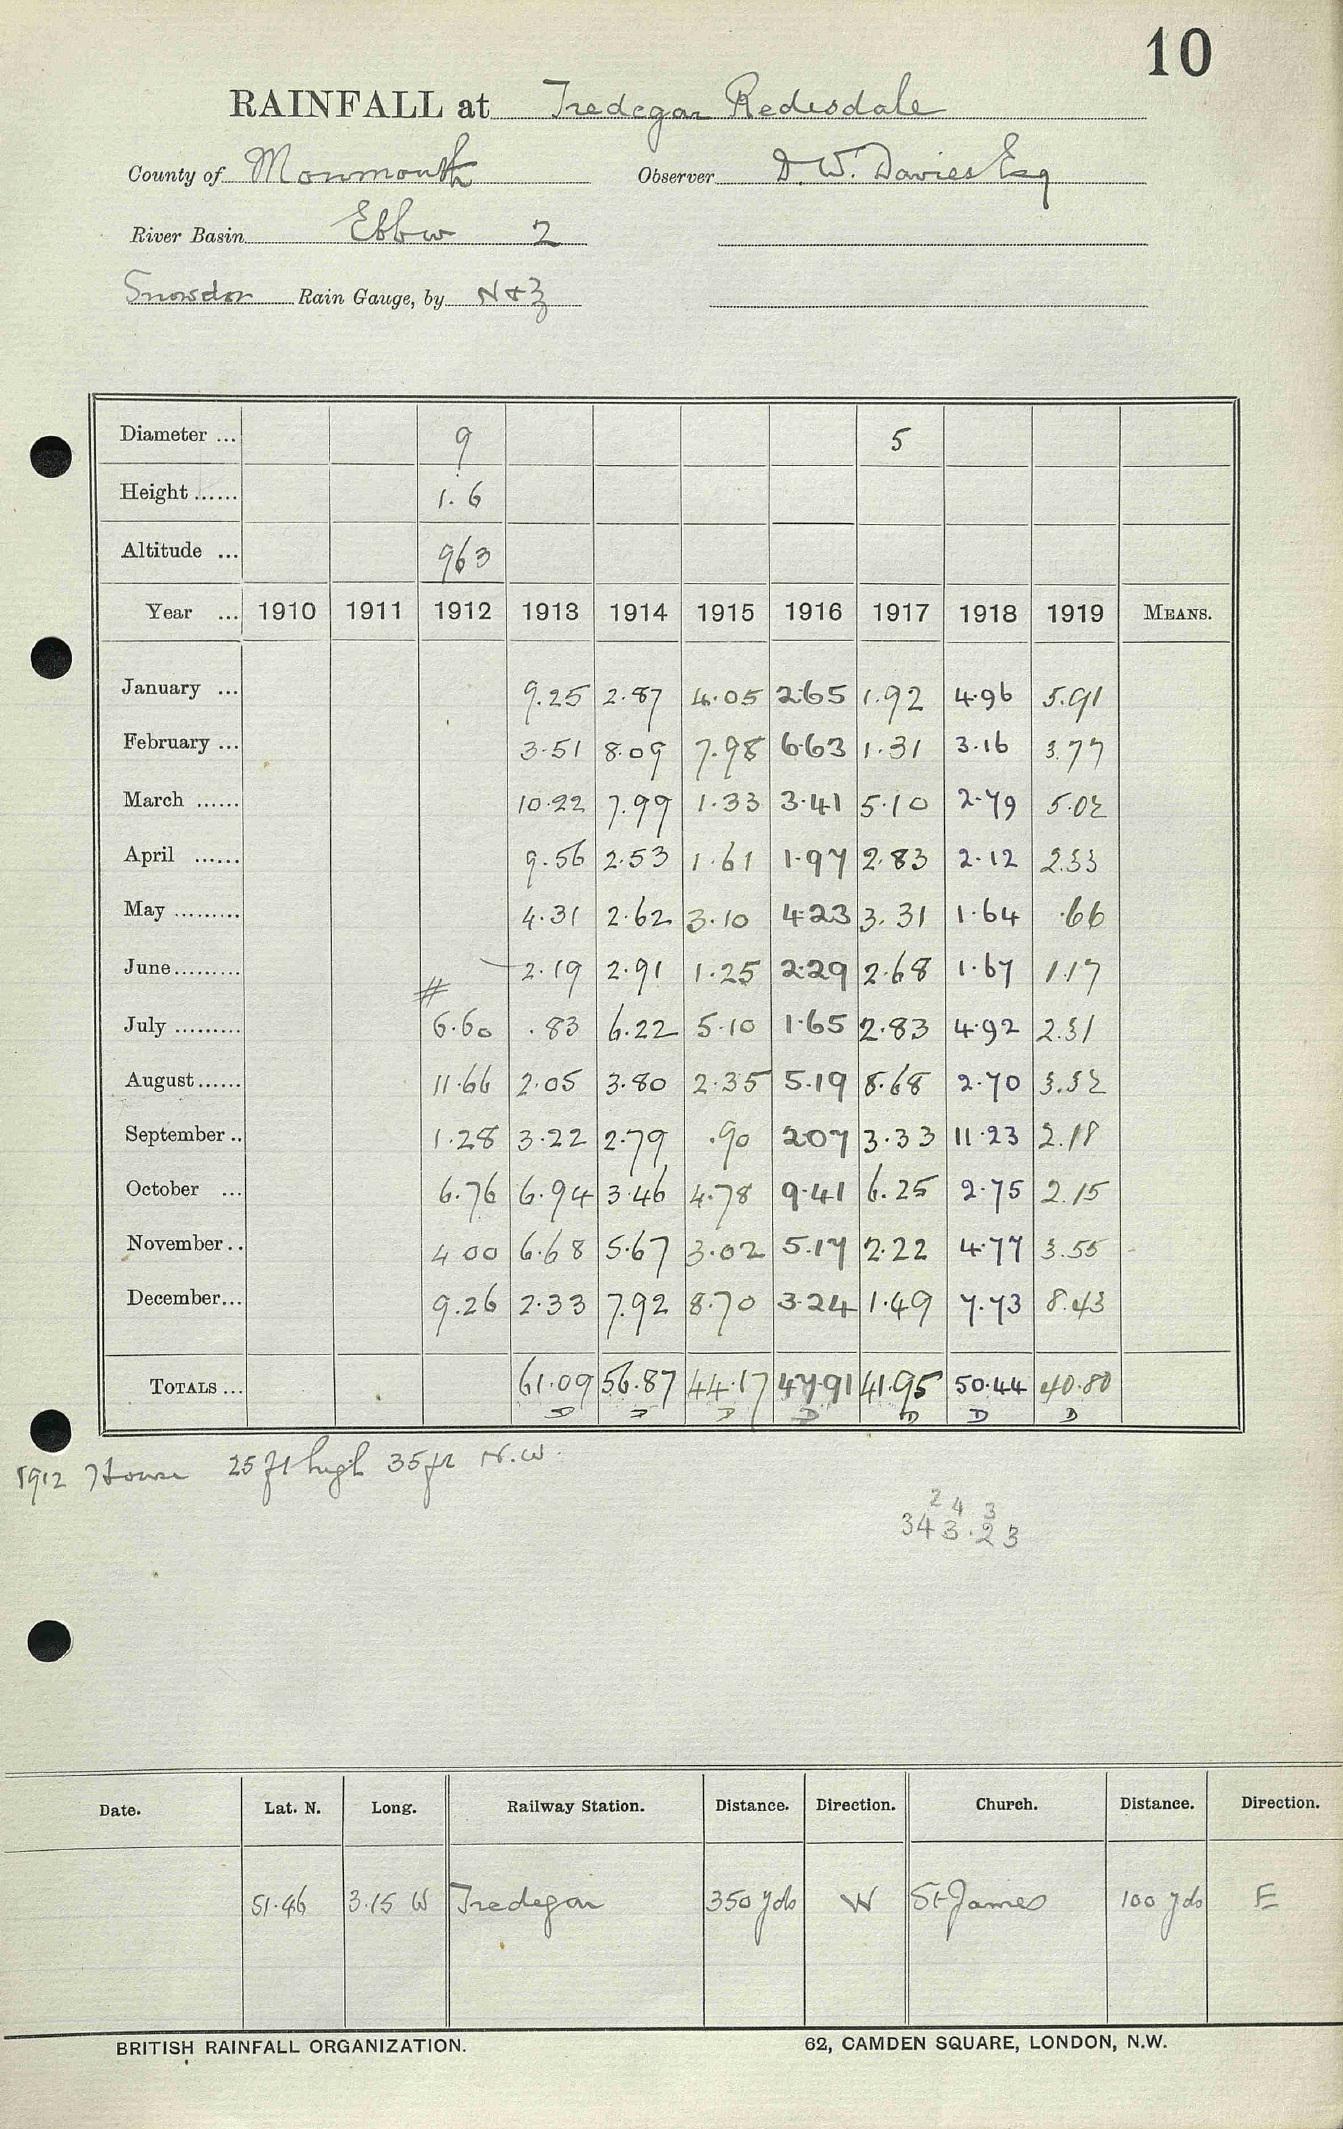 10
RAINFALL at Tredegar Redesdale
County of Monmouth Observer D. W. Davies Esq
River Basin Ebbw 2
Snowdon Rain Gauge, by N & Z
Diameter ... 9 5
Height ...... 1.6
Altitude ... 963
Year ... 1910 1911 1912 1913 1914 1915 1916 1917 1918 1919 MEANS.
January ... 9.25 2.87 4.05 2.65 1.92 4.96 5.91
February ... 3.51 8.09 7.98 6.63 1.31 3.16 3.77
March ...... 10.22 7.99 1.33 3.41 5.10 2.79 5.02
April ...... 9.56 2.53 1.61 1.97 2.83 2.12 2.33
May ......... 4.31 2.62 3.10 4.23 3.31 1.64 .66
June ......... 2.19 2.91 1.25 2.29 2.68 1.67 1.17
#
July ......... 6.60 .83 6.22 5.10 1.65 2.83 4.92 2.31
August ...... 11.66 2.05 3.80 2.35 5.19 8.68 2.70 3.32
September .. 1.28 3.22 2.79 .90 2.07 3.33 11.23 2.18
October ... 6.76 6.94 3.46 4.78 9.41 6.25 2.75 2.15
November .. 4 00 6.68 5.67 3.02 5.17 2.22 4.77 3.55
December ... 9.26 2.33 7.92 8.70 3.24 1.49 7.73 8.43
TOTALS ... 61.09 56.87 44.17 47.91 41.95 50.44 40.80
D D D D D D D
1912 House 25 ft high 35 ft N.W.
2 4 3
343.23
Date. Lat. N. Long. Railway Station. Distance. Direction. Church. Distance. Direction.
51.46 3.15 W Tredegar 350 yds W St James 100 yds E
BRITISH RAINFALL ORGANIZATION. 62, CAMDEN SQUARE, LONDON, N.W.